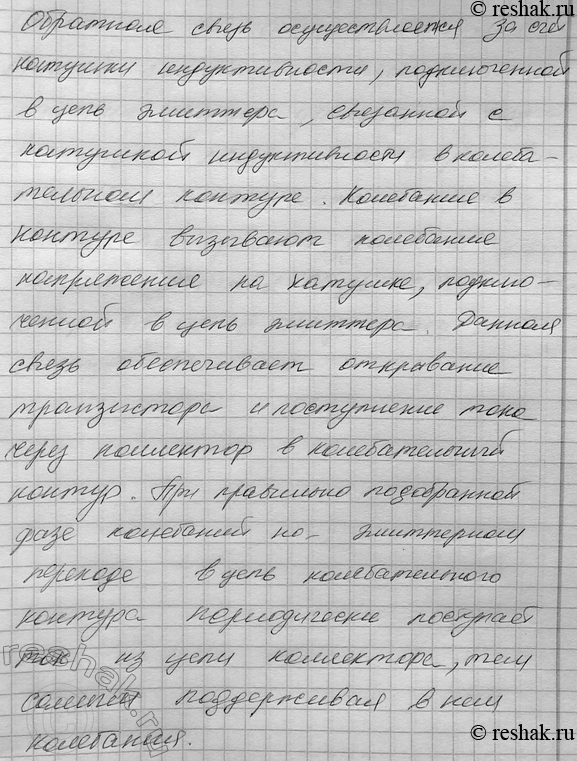 reshak.ru
Обратная связь осуществляется за счёт
катушки индуктивности, подключенной
в цепь эмиттера, связанной с
катушкой индуктивности в колеба-
тельном контуре. Колебание в
контуре вызывают колебание
напряжение на катушке, подклю-
ченной в цепь эмиттера. Данная
связь обеспечивает открывание
транзистора и поступление тока
через коллектор в колебательный
контур. При правильно подобранной
фазе колебаний на эмиттерном
переходе в цепь колебательного
контура периодически поступает
ток из цепи коллектора, тем
самым поддерживая в нем
колебания.
reshak.ru
reshak.ru